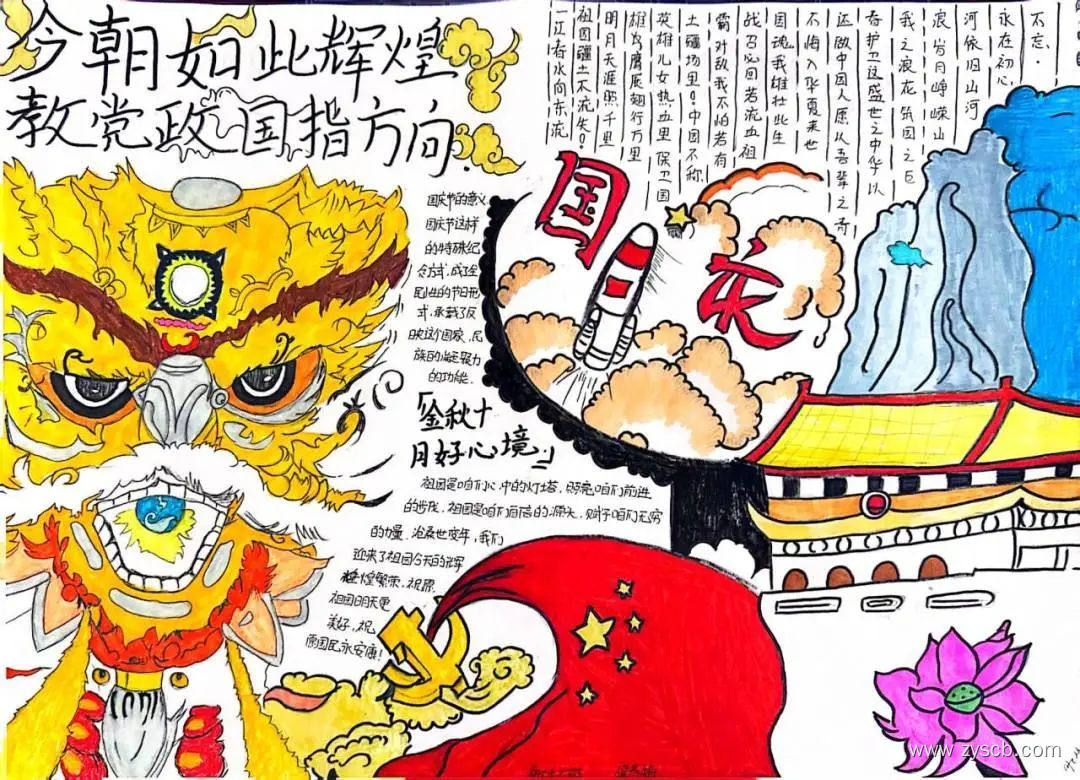 今朝如此辉煌
教党政国指方向
一江春水向东流
祖国疆土不流失。
明月天涯照千里
雄鸟鹰展翅行万里
英雄儿女热血里 保卫国
土疆场里。中国不称
霸对敌我不怕若有
战召必回若流血祖
国魂我雄壮此生
不悔入华夏来世
还做中国人愿从吾辈之奇
护卫这盛世之中华以
我之浪花 筑国之巨
浪岁月峥嵘山
河依旧山河
永在初心
不忘。
国庆
国庆节的意义
国庆节这样
的特殊纪
念方式,成了全
民性的节日形
式,承载了反
映这个国家、民
族的凝聚力
的功能。
「金秋十
月好心境」
祖国是咱们心中的灯塔,照亮咱们前进
的步伐,祖国是咱们自信的源头,赋予咱们无穷
的力量,沧桑世变年,我们
迎来了祖国今天的辉
煌繁荣,祝愿
祖国明天更
美好,祝
愿国民永安康!
www.zyscb.com